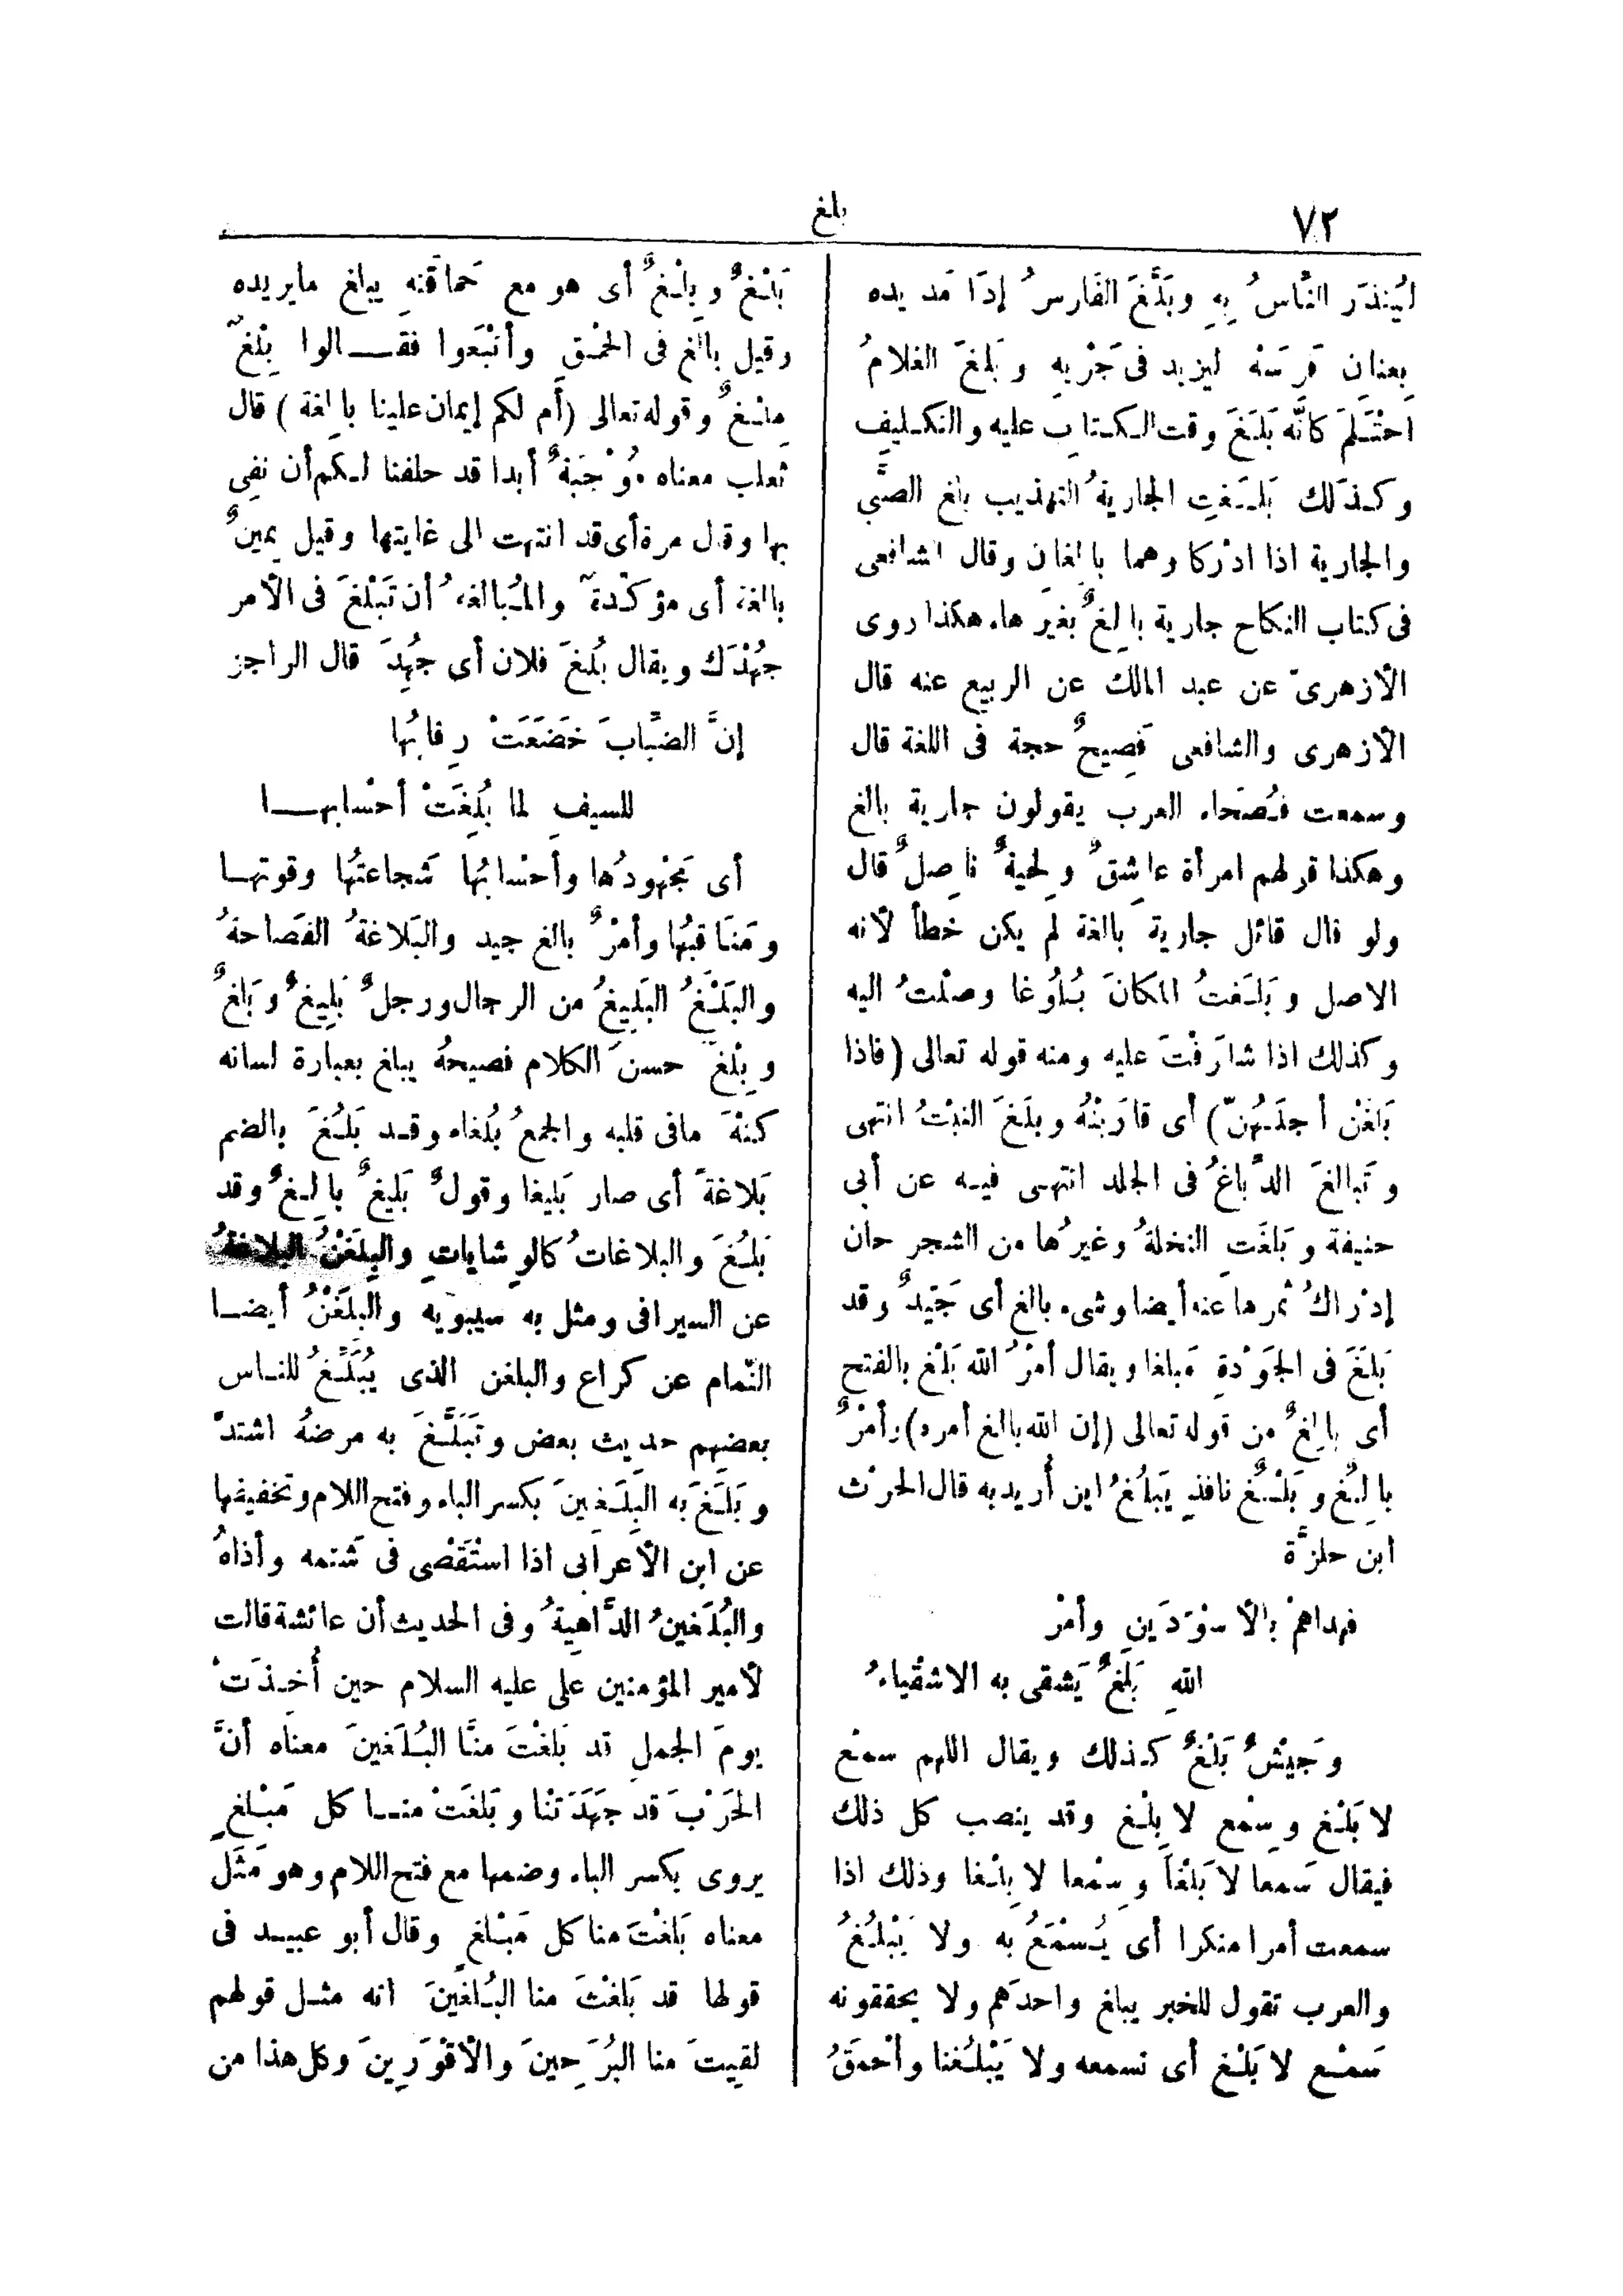 ٧٢
بلغ
ليُنْذَر النَّاسُ بِهِ وبَلَّغَ الفَارسُ إذَا مَدَّ يده
بِعنانِ فَرَسَهْ ليزيد فى جَرْيِهِ وبَلَغَ الغلامُ
احْتَلَمَ كأنَّه بَلَغَ وقت الكتابِ عليه والتكليفِ
وكذلك بَلَغَتِ الجاريةُ التهذيب بلغ الصَّبى
والجارية اذا ادْرَكا وهما بالغان وقال الشافعى
فى كتاب النكاح جارية بالِغٌ بغيْر هاء هكذا روى
الأزهرىّ عن عبد المالك عن الربيع عنه قال
الأزهرى والشافعى فَصِيحٌ حجة فى اللغة قال
وسمعت فُصَحاء العرب يقولون جارية بالغ
وهكذا قولهم امرأة عاشِقٌ ولحيةٌ ناصِلٌ قال
ولو قال قائل جارية بالغة لم يكن خطأ لأنه
الاصل وبَلَغتُ المكانَ بُلُوغا وصلْتُ اليه
وكذلك اذا شارَفْتَ عليه ومنه قوله تعالى (فاذا
بَلَغْن أجلَهُنّ) أى قارَبْنَهُ وبلَغَ النبْتُ انتهى
وتَبالغَ الدّباغُ فى الجلد انتهى فيه عن أبى
حنيفة وبَلَغَتِ النخلةُ وغيرُها من الشجر حان
إدْراكُ ثمرها عنه أيضا وشىء بالغ أى جَيّدٌ وقد
بَلَغَ فى الجَوْدةِ مَبلغا ويقال أمْرُ الله بَلْغ بالفتح
أى بالِغٌ من قوله تعالى (إن الله بالغ أمره) وأمْرٌ
بالِغٌ وبَلْغٌ نافذ يَبلُغُ اين أُريد به قال الحرْث
ابن حلزَّة
فهداهمْ بالأسْوَدَينِ وأمْر
اللهِ بَلْغٌ يَشقى به الاشقْياءُ
وجَيْشٌ بَلْغٌ كذلك ويقال اللهم سمْع
لا بَلْغ وسِمْع لا بِلْغ وقد ينصب كل ذلك
فيقال سَمعا لا بَلْغاً وسِمْعا لا بِلْغا وذلك اذا
سمعت أمرا منكرا أى يُسْمَعُ به ولا يَبْلُغُ
والعرب تقول للخبر يبلغ واحدَهم ولا يحققونه
سَمْع لا بَلْغ أى نسمعه ولا يَبْلُغنا وأحْمَقُ
بَلْغٌ وبِلْغٌ أى هو مع حَماقَتِه يبلغ ما يريده
وقيل بالَغ فى الحُمْق وأتْبَعوا فقالوا بِلْغٌ
مِلْغٌ وقوله تعالى (أم لكم إيمان علينا بالغة) قال
ثعلب معناه مُوجَبَةٌ أبدا قد حلفنا لكم أن نفى
بها وقال مرة أى قد انتهت الى غايتها وقيل يمينٌ
بالغة أى مؤكّدةٌ والمُبالغةُ أن تَبْلُغَ فى الأمر
جهْدَك ويقال بُلغَ فلان أى جُهِدَ قال الراجز
إنَّ الضِّبابَ خَضَعَتْ رِقابُها
للسيفِ لما بُلِغَتْ أحْسابهــا
أى مَجْهودُها وأحْسابُها شَجاعتُها وقوتهـا
ومَناقبُها وأمْرٌ بالغ جيد والبَلاغةُ الفَصاحةُ
والبَلْغُ البَلِيغُ من الرجال ورجلٌ بَلِيغٌ وبَلغٌ
وبِلْغٌ حسن الكلام فصيحهُ يبلغ بعبارة لسانه
كنْهَ مافى قلبه والجمعُ بُلغاء وقد بَلُغَ بالضم
بَلاغةً أى صار بَليغا وقولٌ بَليغٌ بالِغٌ وقد
بَلُغَ والبلاغاتُ كالوِشاياتِ والبِلَغْنُ البلاغةُ
عن السيرافى ومثل به سيبويه والبِلَغْنُ أيضـا
النَّمام عن كراع والبلغن الذى يُبَلِّغُ للناس
بعضِهم حديث بعض وتَبَلَّغَ به مرضهُ اشتدّ
وبَلَّغَ به البِلَغِينَ بكسر الباء وفتح اللام وتخفيفها
عن ابن الأعرابى اذا استَقْصى فى شَتمه وأذاهُ
والبُلَغينُ الدَّاهِيةُ وفى الحديث أن عائشة قالت
لأمير المؤمنين على عليه السلام حين أُخِذَتْ
يومَ الجملِ قد بَلَغْتَ منَّا البُلَغينَ معناه أنَّ
الحَرْبَ قد جَهَدَتْنا وبَلَغَتْ منـا كل مَبْلغٍ
يروى بكسر الباء وضمها مع فتح اللام وهو مَثَل
معناه بَلَغْتَ منا كل مَبْلغٍ وقال أبو عبيد فى
قولها قد بَلَغْتَ منا البُلَغينَ انه مثل قولهم
لقِيتَ منا البُرَحِينَ والأَقْوَرِينَ وكل هذا من